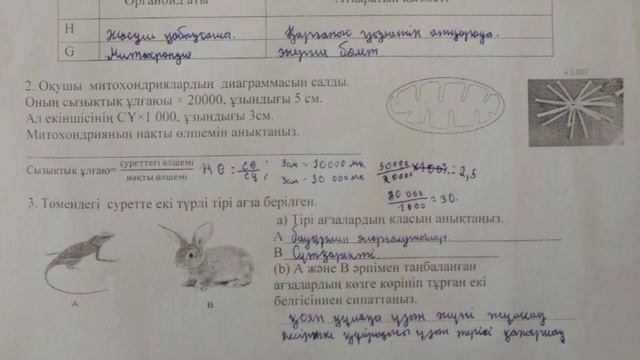 Органоид аты Атқаратын қызметі
Н Жасуша қабықшасы.
G Митохондрия энергия бөлу
2. Оқушы митохондриялардың диаграммасын салды.
Оның сызықтық ұлғаюы × 20000, ұзындығы 5 см.
Ал екіншісінің СҰ×1 000, ұзындығы 3см.
Митохондрияның нақты өлшемін анықтаңыз.
x 1,000
Сызықтық ұлғаю= суреттегі өлшемі / нақты өлшемі Н Ө = СӨ / СҰ ; 5см = 50000 мк 50000 / 20000 = 2,5
3см = 30 000мк 30 000 / 1000 = 30.
3. Төмендегі суретте екі түрлі тірі ағза берілген.
a) Тірі ағзалардың класын анықтаңыз.
А бауырмен жорғалаушылар.
В Сүтқоректі.
(b) А және В әрпімен таңбаланған
ағзалардың көзге көрініп тұрған екі
белгісінен сипаттаңыз.
А В
қоян құлағы ұзын жүні жұмсақ
кесіртке құйрығы ұзын терісі